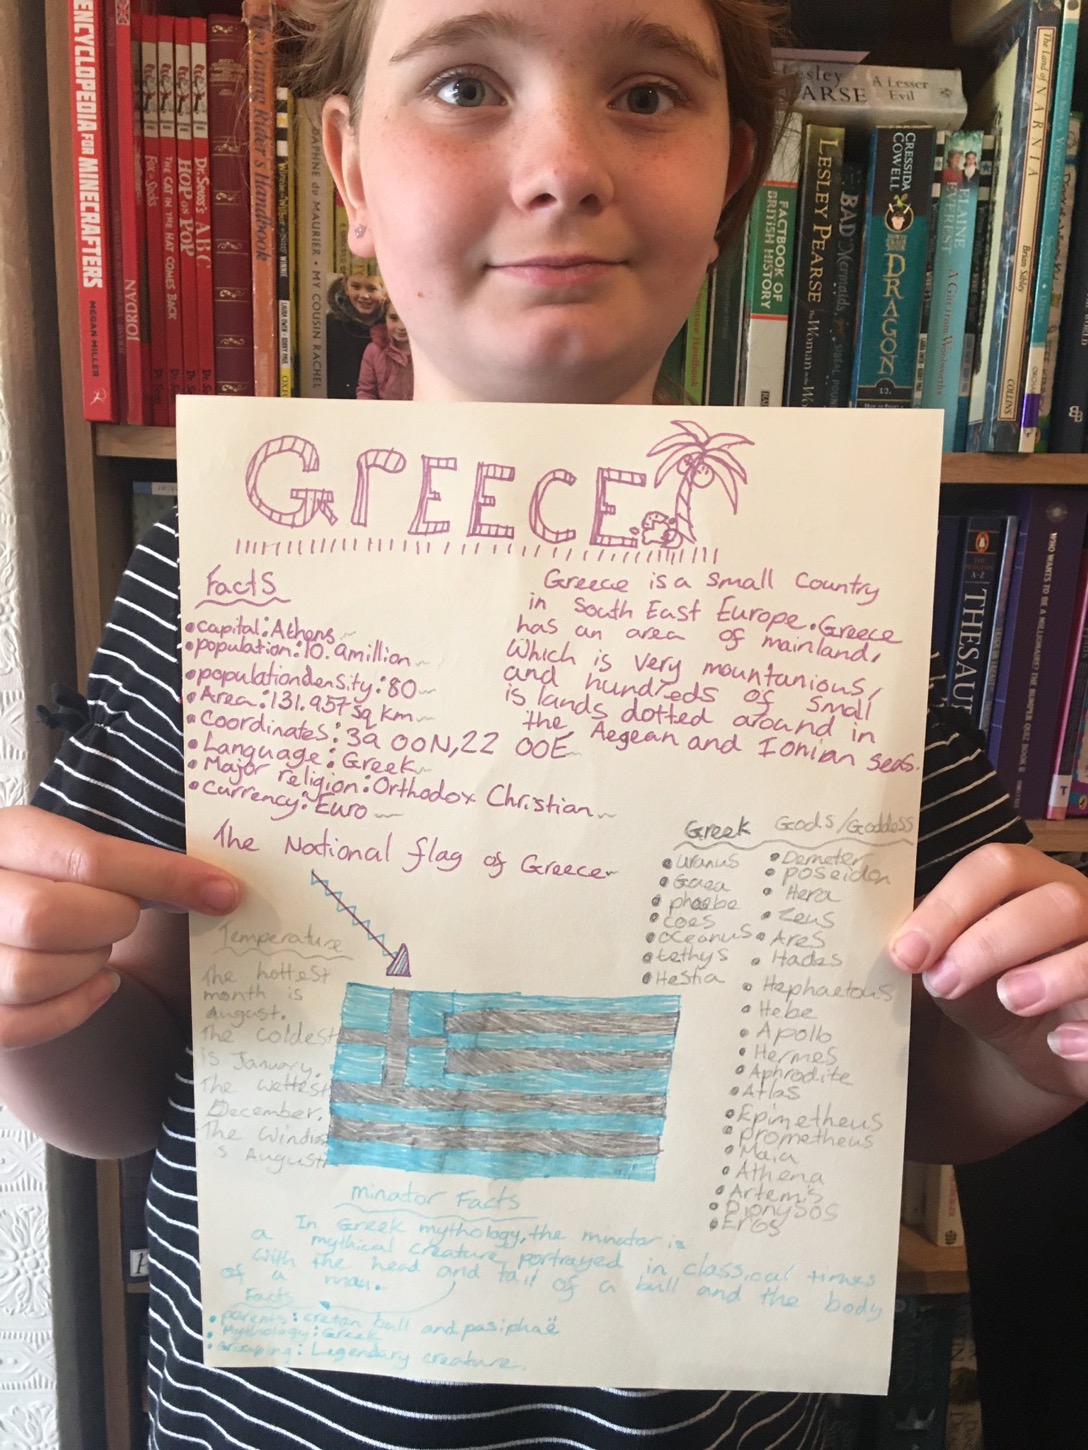 ENCYCLOPEDIA FOR MINECRAFTERS
MEGAN MILLER
JORDAN
Fox in Socks
THE CAT IN THE HAT COMES BACK
HOP ON POP
Dr. Seuss's ABC
The Young Rider's Handbook
DAPHNE du MAURIER • MY COUSIN RACHEL
Lesley PEARSE
A Lesser Evil
FACTBOOK OF BRITISH HISTORY
LESLEY PEARSE
BAD Mermaids
CRESSIDA COWELL
DRAGON
12.
ELAINE EVEREST
A Gift from Woolworths
The Land of NARNIA
Brian Sibley
COLLINS
THESAU
WHO WANTS TO BE A MILLIONAIRE? THE BUMPER QUIZ BOOK II
GrEECE
Facts
• capital: Athens
• population: 10.9million
• populationdensity: 80
• Area: 131.957 sq km
• coordinates: 39 00N, 22 00E
• Language: Greek
• Major religion: Orthodox Christian
• currency: Euro
Greece is a small country
in South East Europe. Greece
has an area of mainland,
which is very mountanious,
and hundreds of small
is lands dotted around in
the Aegean and Ionian seas.
The National flag of Greece
Greek Gods/Goddess
• uranus
• Gaea
• phoebe
• coes
• oceanus
• tethys
• Hestia
• Demeter
• poseidon
• Hera
• Zeus
• Ares
• Hades
• Hephaetous
• Hebe
• Apollo
• Hermes
• Aphrodite
• Atlas
• Epimetheus
• prometheus
• Maia
• Athena
• Artemis
• Dionysos
• Eros
Temperature
The hottest
month is
august.
The coldest
is January.
The wettest
December.
The Windies
is August
minator Facts
In Greek mythology, the minator is
a mythical creature portrayed in classical times
with the head and tail of a bull and the body
of a man.
Facts
• parents: cretan bull and pasiphaë
• Mythology: Greek
• Grouping: Legendary creature.